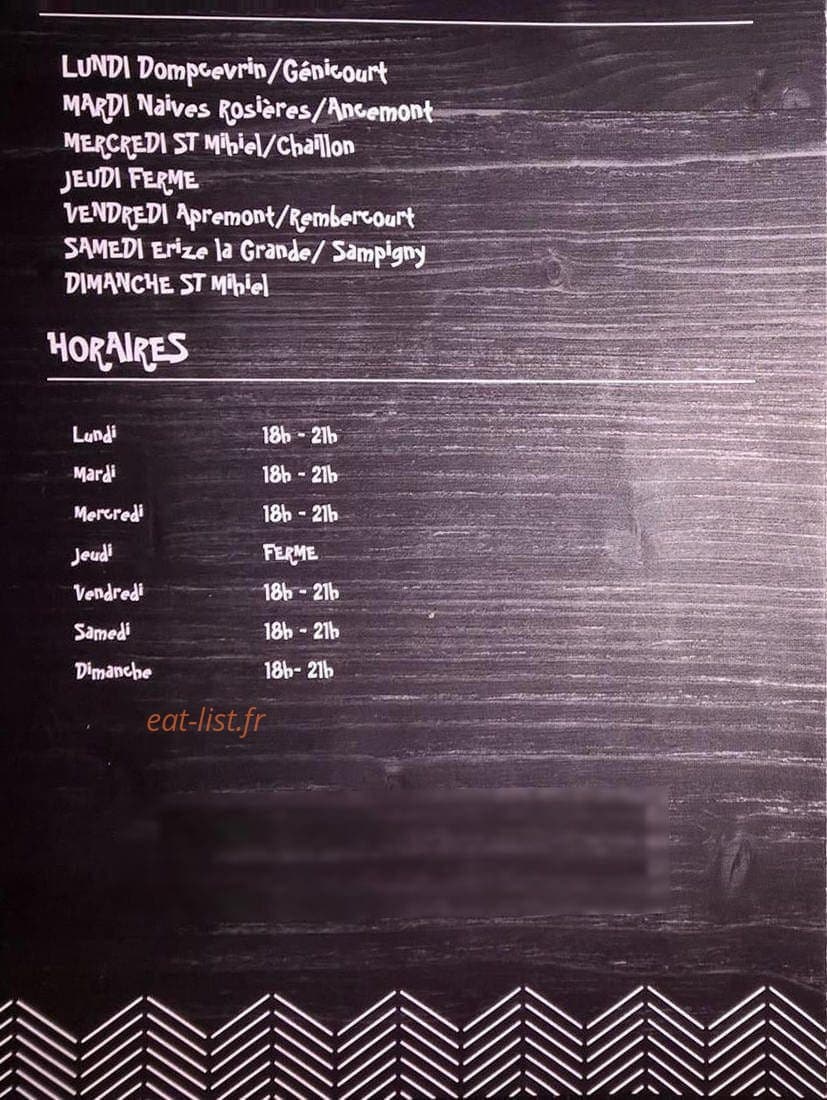 LUNDI Dompcevrin/Génicourt
MARDI Naives Rosières/Ancemont
MERCREDI ST Mihiel/Chaillon
JEUDI FERME
VENDREDI Apremont/Rembercourt
SAMEDI Erize la Grande/ Sampigny
DIMANCHE ST Mihiel
HORAIRES
Lundi 18h - 21h
Mardi 18h - 21h
Mercredi 18h - 21h
Jeudi FERME
Vendredi 18h - 21h
Samedi 18h - 21h
Dimanche 18h- 21h
eat-list.fr